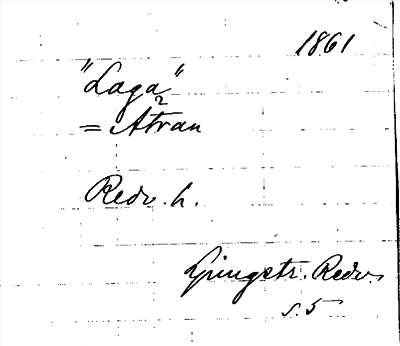 1861
"Laga"
2
= Ätran
Redv. h.
Ljungstr. Redv.
s. 5